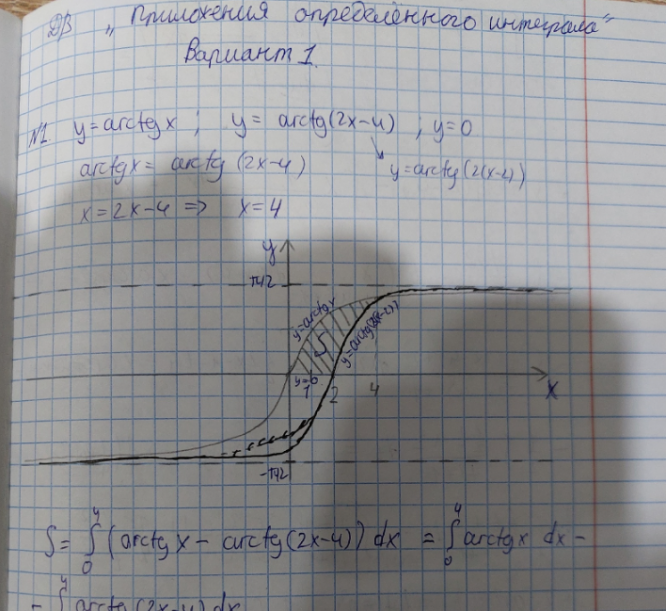 ДЗ „Приложения определённого интеграла"
Вариант 1.
№1 y=arctg x ; y = arctg(2x-4) ; y=0
arctg x = arctg (2x-4) y=arctg(2(x-2))
x=2x-4 => x=4
y
π/2
y=arctg x
S
y=arctg(2(x-2))
y=0
1 2 4 x
-π/2
S= ∫₀⁴ (arctg x - arctg(2x-4)) dx = ∫₀⁴ arctg x dx -
- ∫⁴ arctg(2x-4) dx